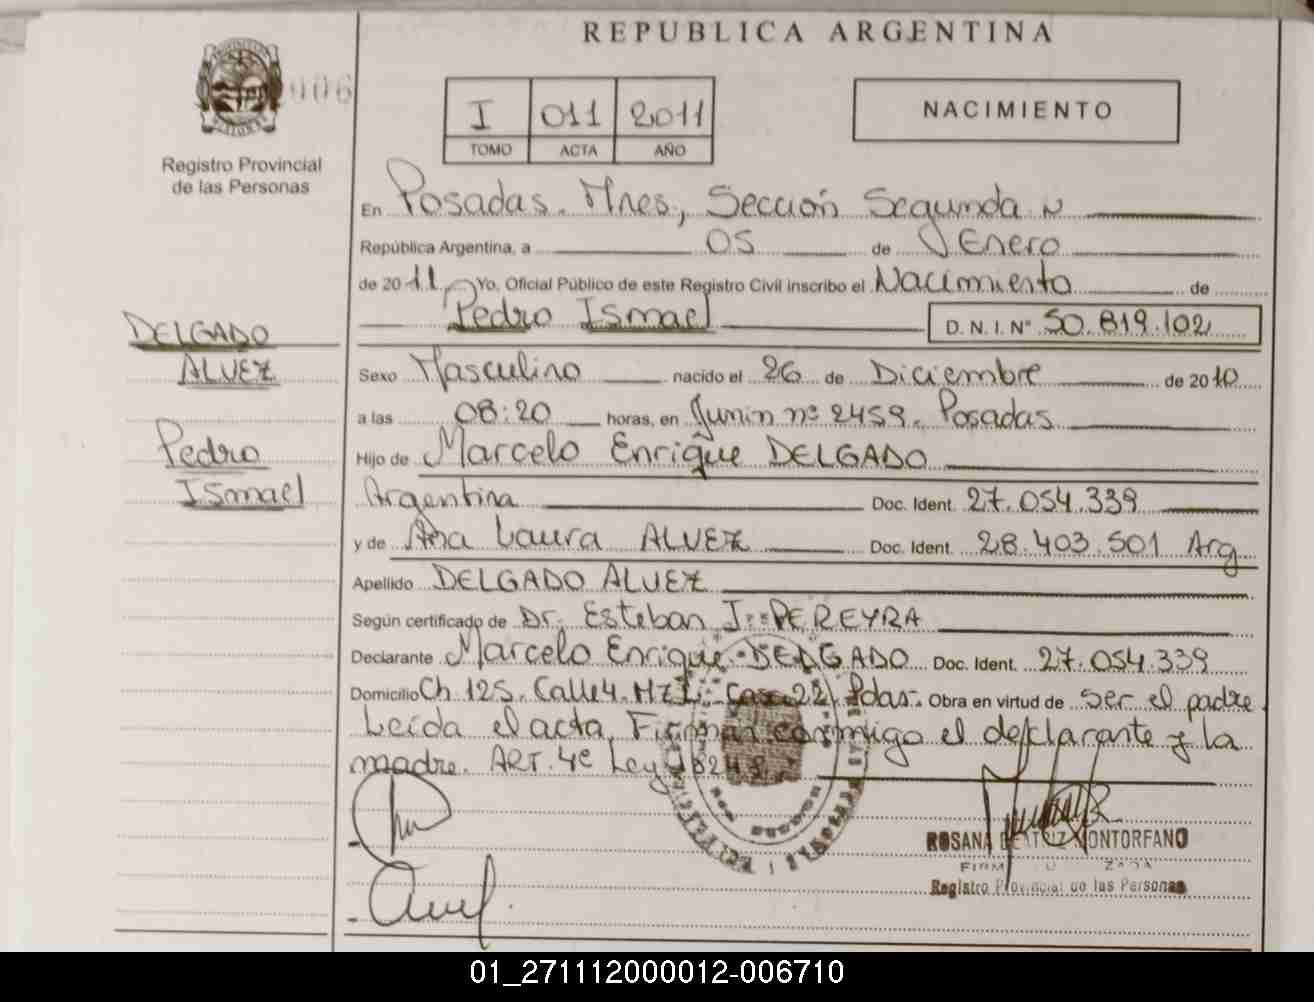 REPUBLICA ARGENTINA
006
Registro Provincial
de las Personas
I 011 2011
TOMO ACTA AÑO
NACIMIENTO
En Posadas. Mnes, Sección Segunda
República Argentina, a 05 de Enero
de 2011, Yo, Oficial Público de este Registro Civil inscribo el Nacimiento de
Pedro Ismael D. N. I. N° 50.819.102
DELGADO
ALVEZ
Pedro
Ismael
Sexo Masculino nacido el 26 de Diciembre de 2010
a las 08:20 horas, en Junin nº 2459. Posadas
Hijo de Marcelo Enrique DELGADO
Argentina Doc. Ident. 27.054.339
y de Ana Laura ALVEZ Doc. Ident. 28.403.501 Arg
Apellido DELGADO ALVEZ
Según certificado de Dr. Esteban J. PEREYRA
Declarante Marcelo Enrique DELGADO Doc. Ident. 27.054.339
Domicilio Ch 125. Calle 4. Mz I. Casa 22 Pdas. Obra en virtud de ser el padre.
Leída el acta, Firman conmigo el declarante y la
madre. ART. 4º Ley 18248
ROSANA BEATRIZ MONTORFANO
Registro Provincial de las Personas
01_271112000012-006710